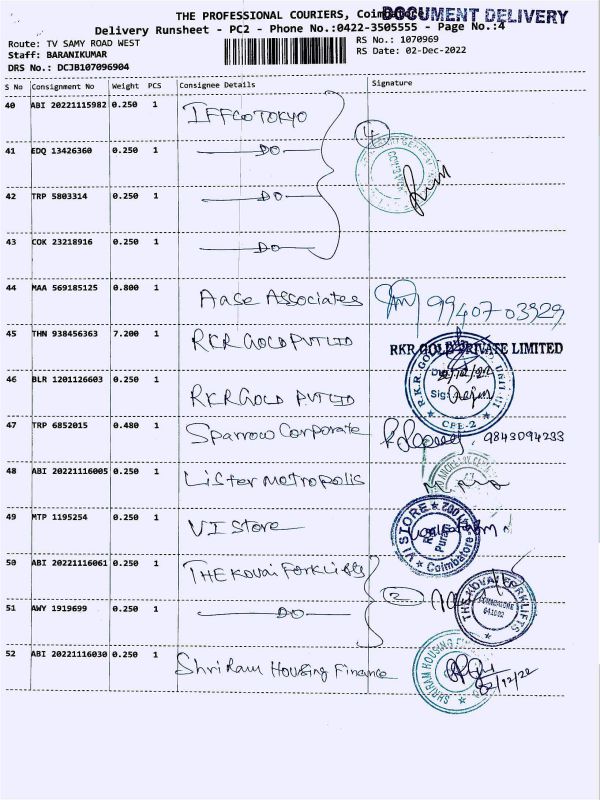 THE PROFESSIONAL COURIERS,
DOCUMENT DELIVERY
Delivery Runsheet - PC2 - Phone No.:0422-3505555 - Page No.:4
Route: TV SAMY ROAD WEST
RS No.: 1070969
Staff: BARANIKUMAR
RS Date: 02-Dec-2022
DRS No.: DCJB107096904
S No Consignment No Weight PCS Consignee Details Signature
40 ABI 20221115982 0.250 1 IFFCO TOKYO
4
41 EDQ 13426360 0.250 1 DO
42 TRP 5803314 0.250 1 DO
43 COK 23218916 0.250 1 DO
44 MAA 569185125 0.800 1 Aase Associates 99407-03929
45 THN 938456363 7.200 1 RKR GOLD PVT LTD
RKR GOLD PRIVATE LIMITED
46 BLR 1201126603 0.250 1 RKR GOLD PVT LTD
CPE-2
47 TRP 6852015 0.480 1 Sparrow Corporate 9843094233
48 ABI 20221116005 0.250 1 Lister metropolis
49 MTP 1195254 0.250 1 VI Store
VI STORE
Coimbatore
50 ABI 20221116061 0.250 1 THE Kovai Forklifts
2
THE KOVAI FORKLIFTS
51 AWY 1919699 0.250 1 DO
52 ABI 20221116030 0.250 1 Shri Ram Housing Finance
02/12/22